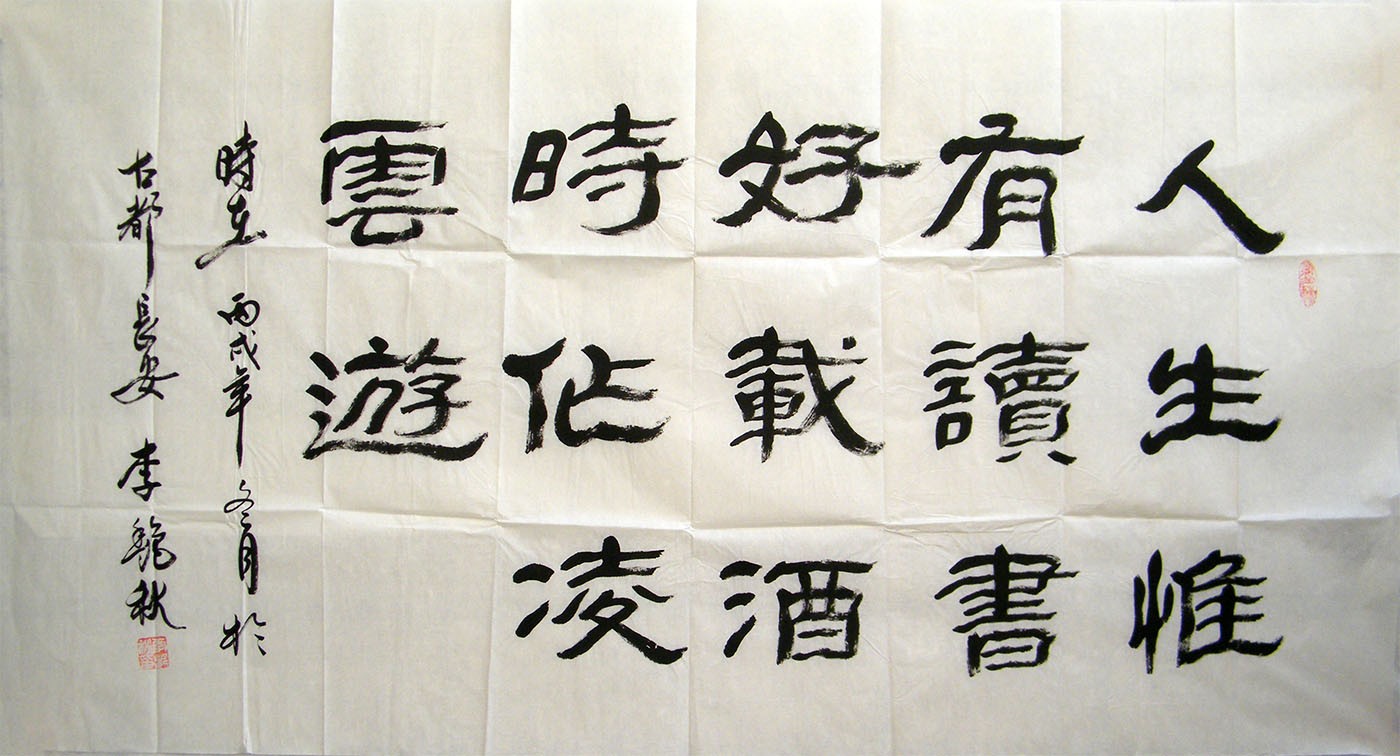 人生惟
有讀書
好載酒
時作凌
雲遊
時在丙戌年冬月於
古都長安李秋